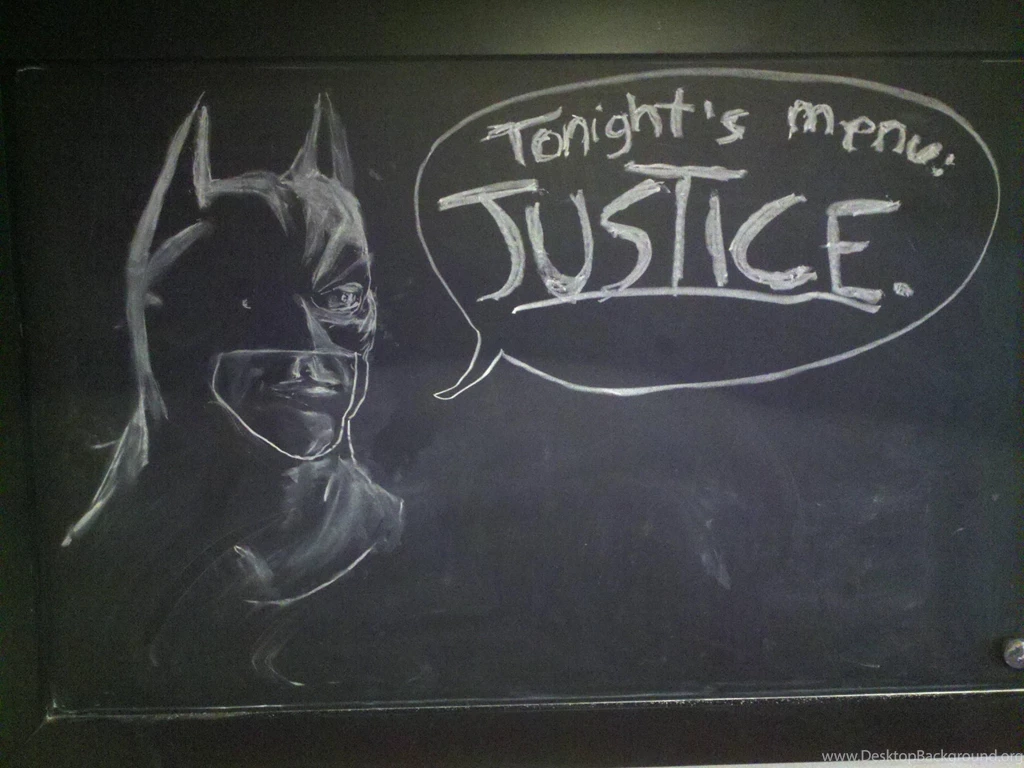 Tonight's menu:
JUSTICE.
www.DesktopBackground.org